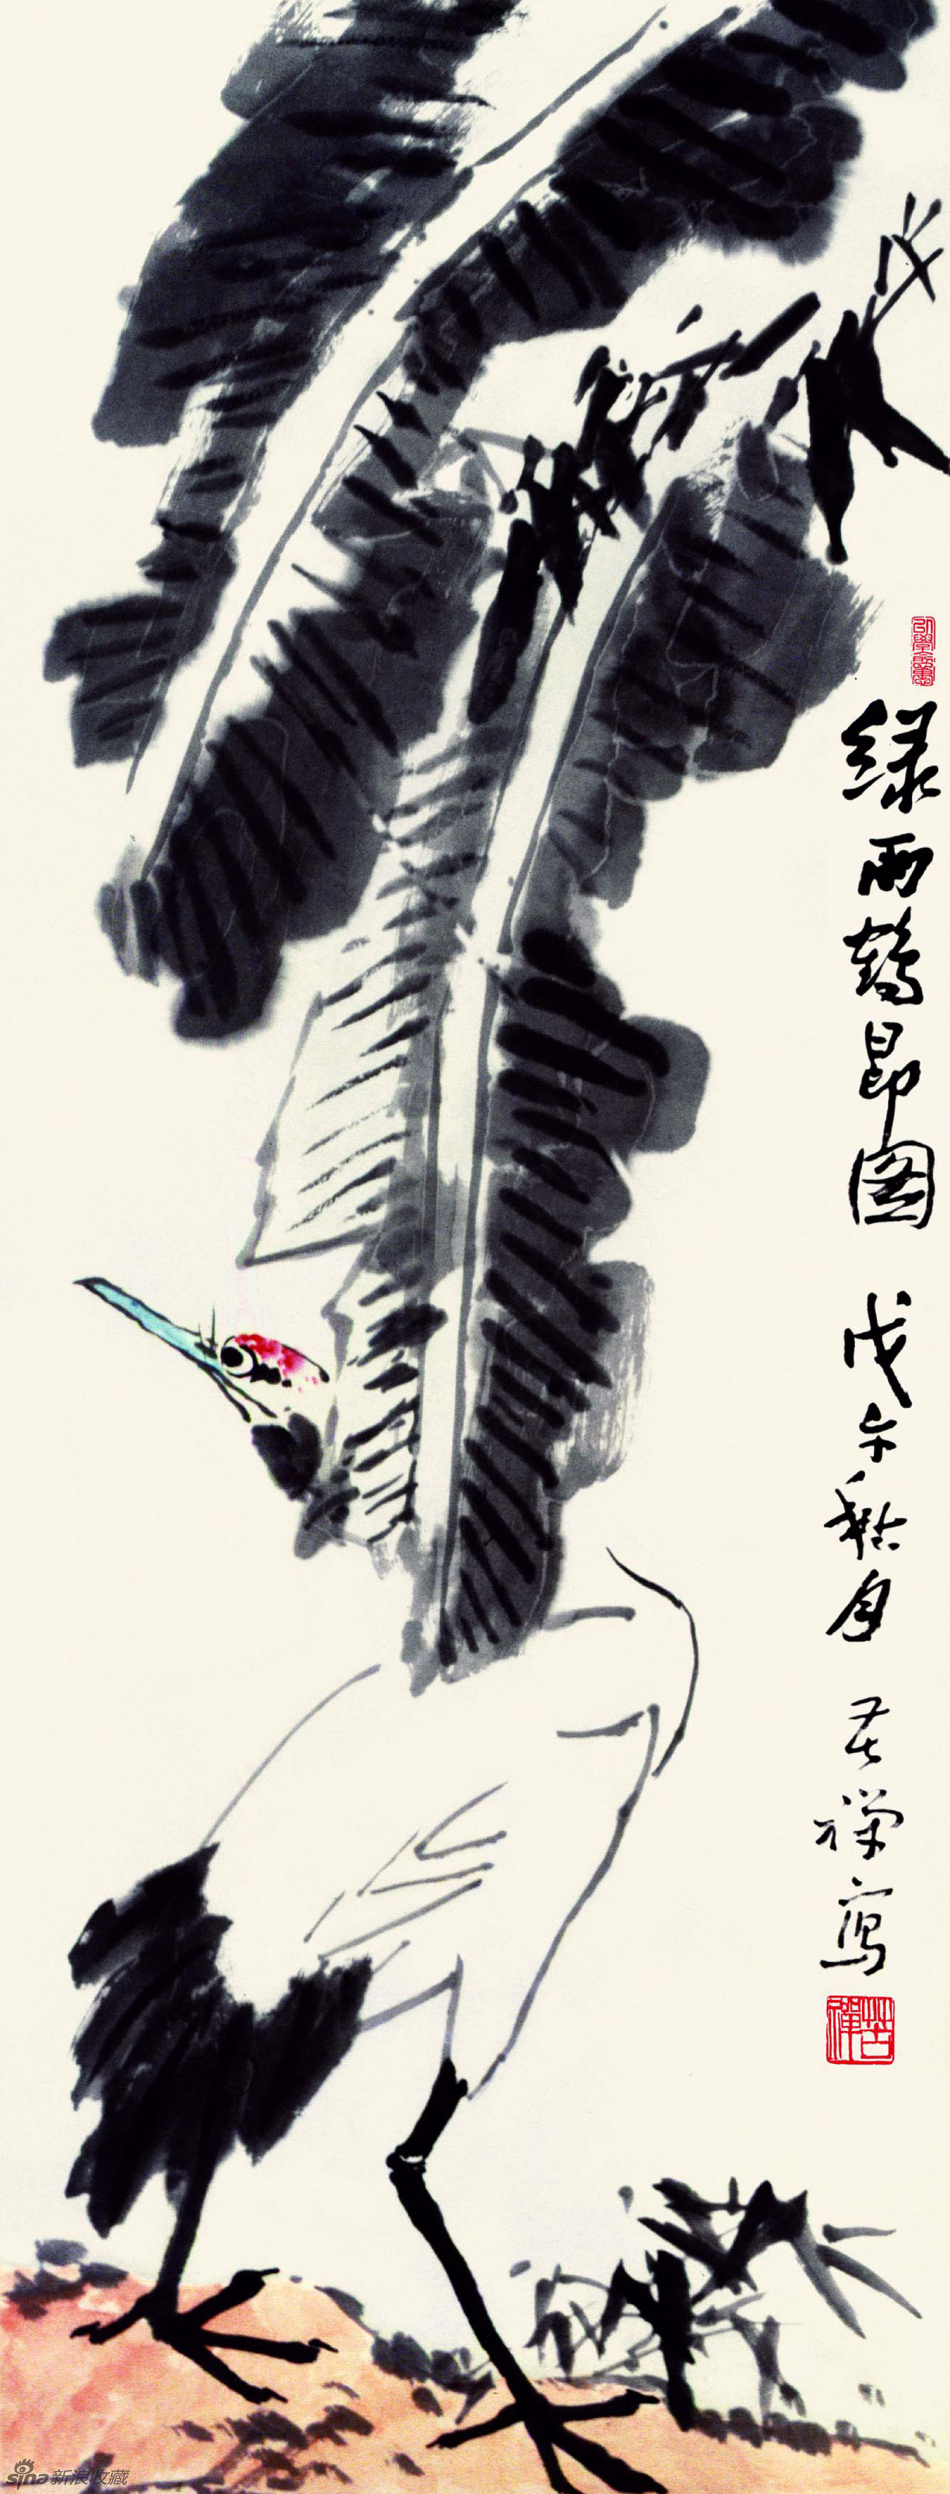 绿雨鹤昂图 戊午秋月 苦禅写
苦禅
sina新浪收藏